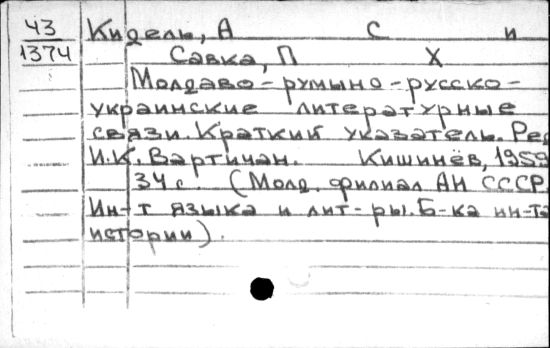 43 Кидель, А С и
1374 Савка, П Х
Молдаво-румыно-русско-
украинские литературные
связи. Краткий указатель. Ред
И.К. Вартичан. Кишинёв, 1959
34 с. (Молд. филиал АН СССР.
Ин-т языка и лит-ры. Б-ка ин-та
истории).